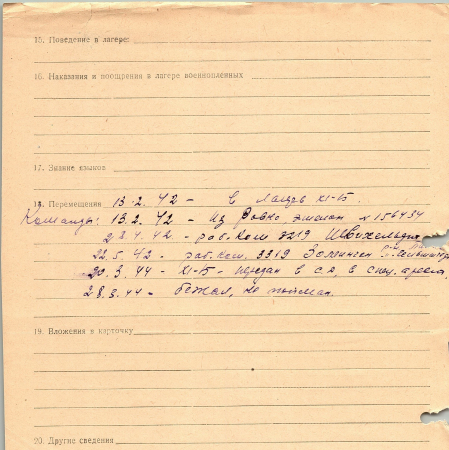 15. Поведение в лагере:
16. Наказания и поощрения в лагере военнопленных
17. Знание языков
18. Перемещения 13.2.42 – в лагерь XI-Б.
Команды: 13.2.42 – из Ровно, эшелон №156434
23.4.42 – раб. ком. 3219
22.5.42 – раб. ком. 3319
20.3.44 – XI-Б – передан в СД, в спец.
28.3.44 – бежал, не пойман.
19. Вложения в карточку
20. Другие сведения